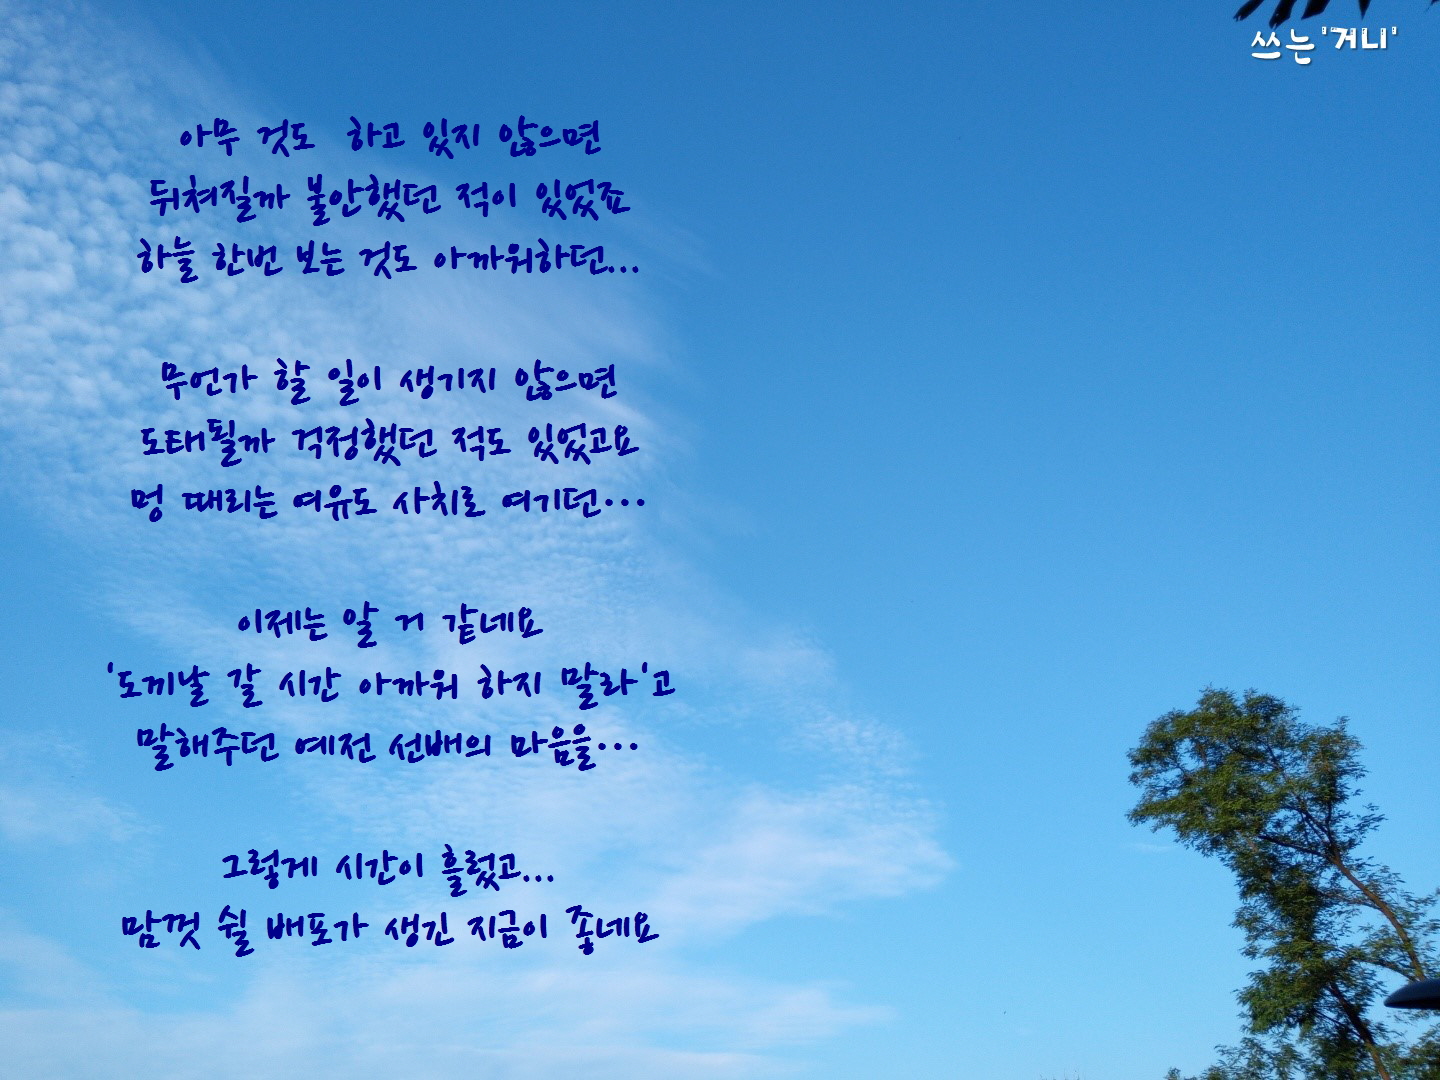 쓰는 '거니'
아무 것도 하고 있지 않으면
뒤쳐질까 불안했던 적이 있었죠
하늘 한번 보는 것도 아까워하던...
무언가 할 일이 생기지 않으면
도태될까 걱정했던 적도 있었고요
멍 때리는 여유도 사치로 여기던···
이제는 알 거 같네요
'도끼날 갈 시간 아까워 하지 말라'고
말해주던 예전 선배의 마음을···
그렇게 시간이 흘렀고...
맘껏 쉴 배포가 생긴 지금이 좋네요